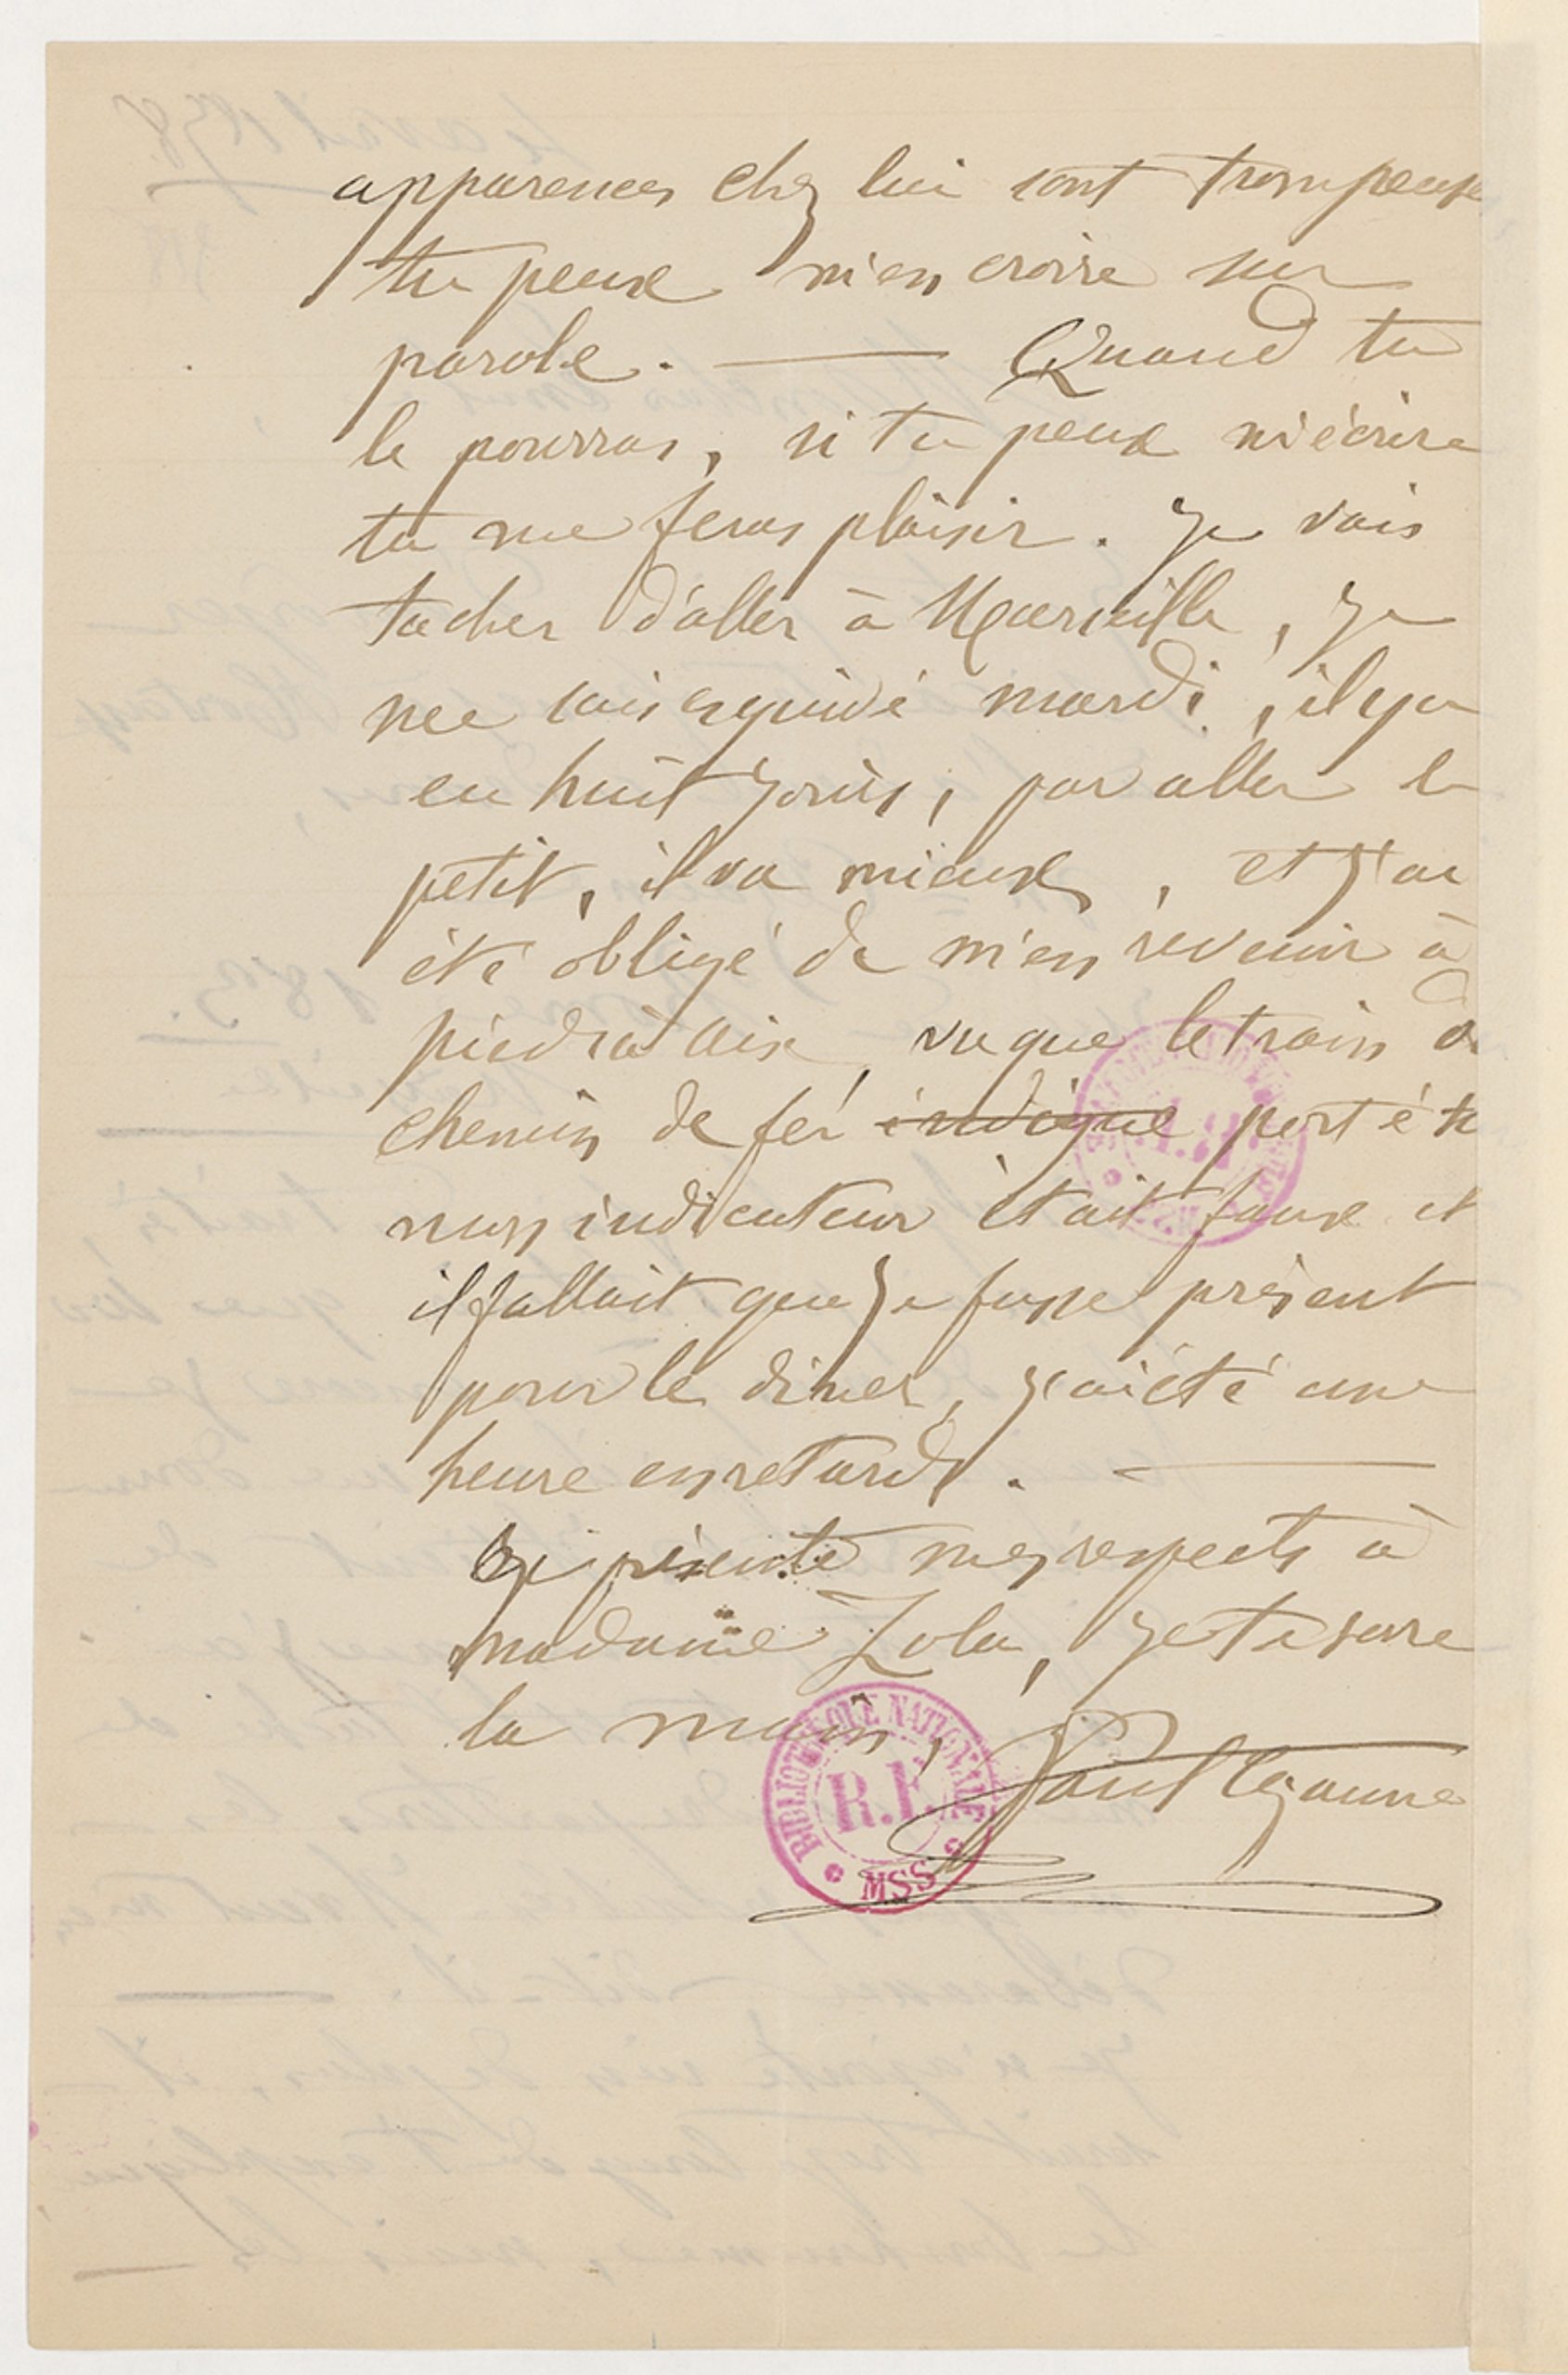 apparences chez lui sont trompeuse
tu peux m'en croire sur
parole. — Quand tu
le pourras, si tu peux m'écrire
tu me feras plaisir. Je vais
tacher d'aller à Marseille, je
me suis esquivé mardi, il y a
eu huit jours, par aller le
petit, il va mieux, et j'ai
été obligé de m'en revenir à
pied à Aix, vu que le train de
chemin de fer indiqué porté su
mon indicateur était faux et
il fallait que je fusse présent
pour le diner, j'ai été une
heure en retard. —
Je présente mes respects à
madame Zola, je te serre
la main,
Paul Cezanne
BIBLIOTHEQUE NATIONALE
R.F.
MSS